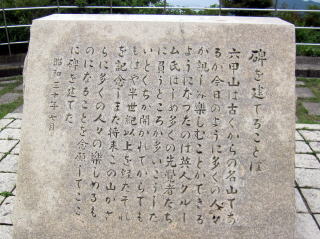 碑を建てることば
六甲山は古くからの名山であ
るが今日のように多くの人々
が親しみ楽しむことができる
ようになったのは英人グルー
ム氏はじめ多くの先覚者たち
に負うところが多いこうした
いとぐちが開かれてからでも
もはや半世紀以上を経たそれ
を記念しまた将来この山がさ
らに多くの人々の楽しめるも
のになることを念願してここ
に碑を建てた
昭和三十年七月